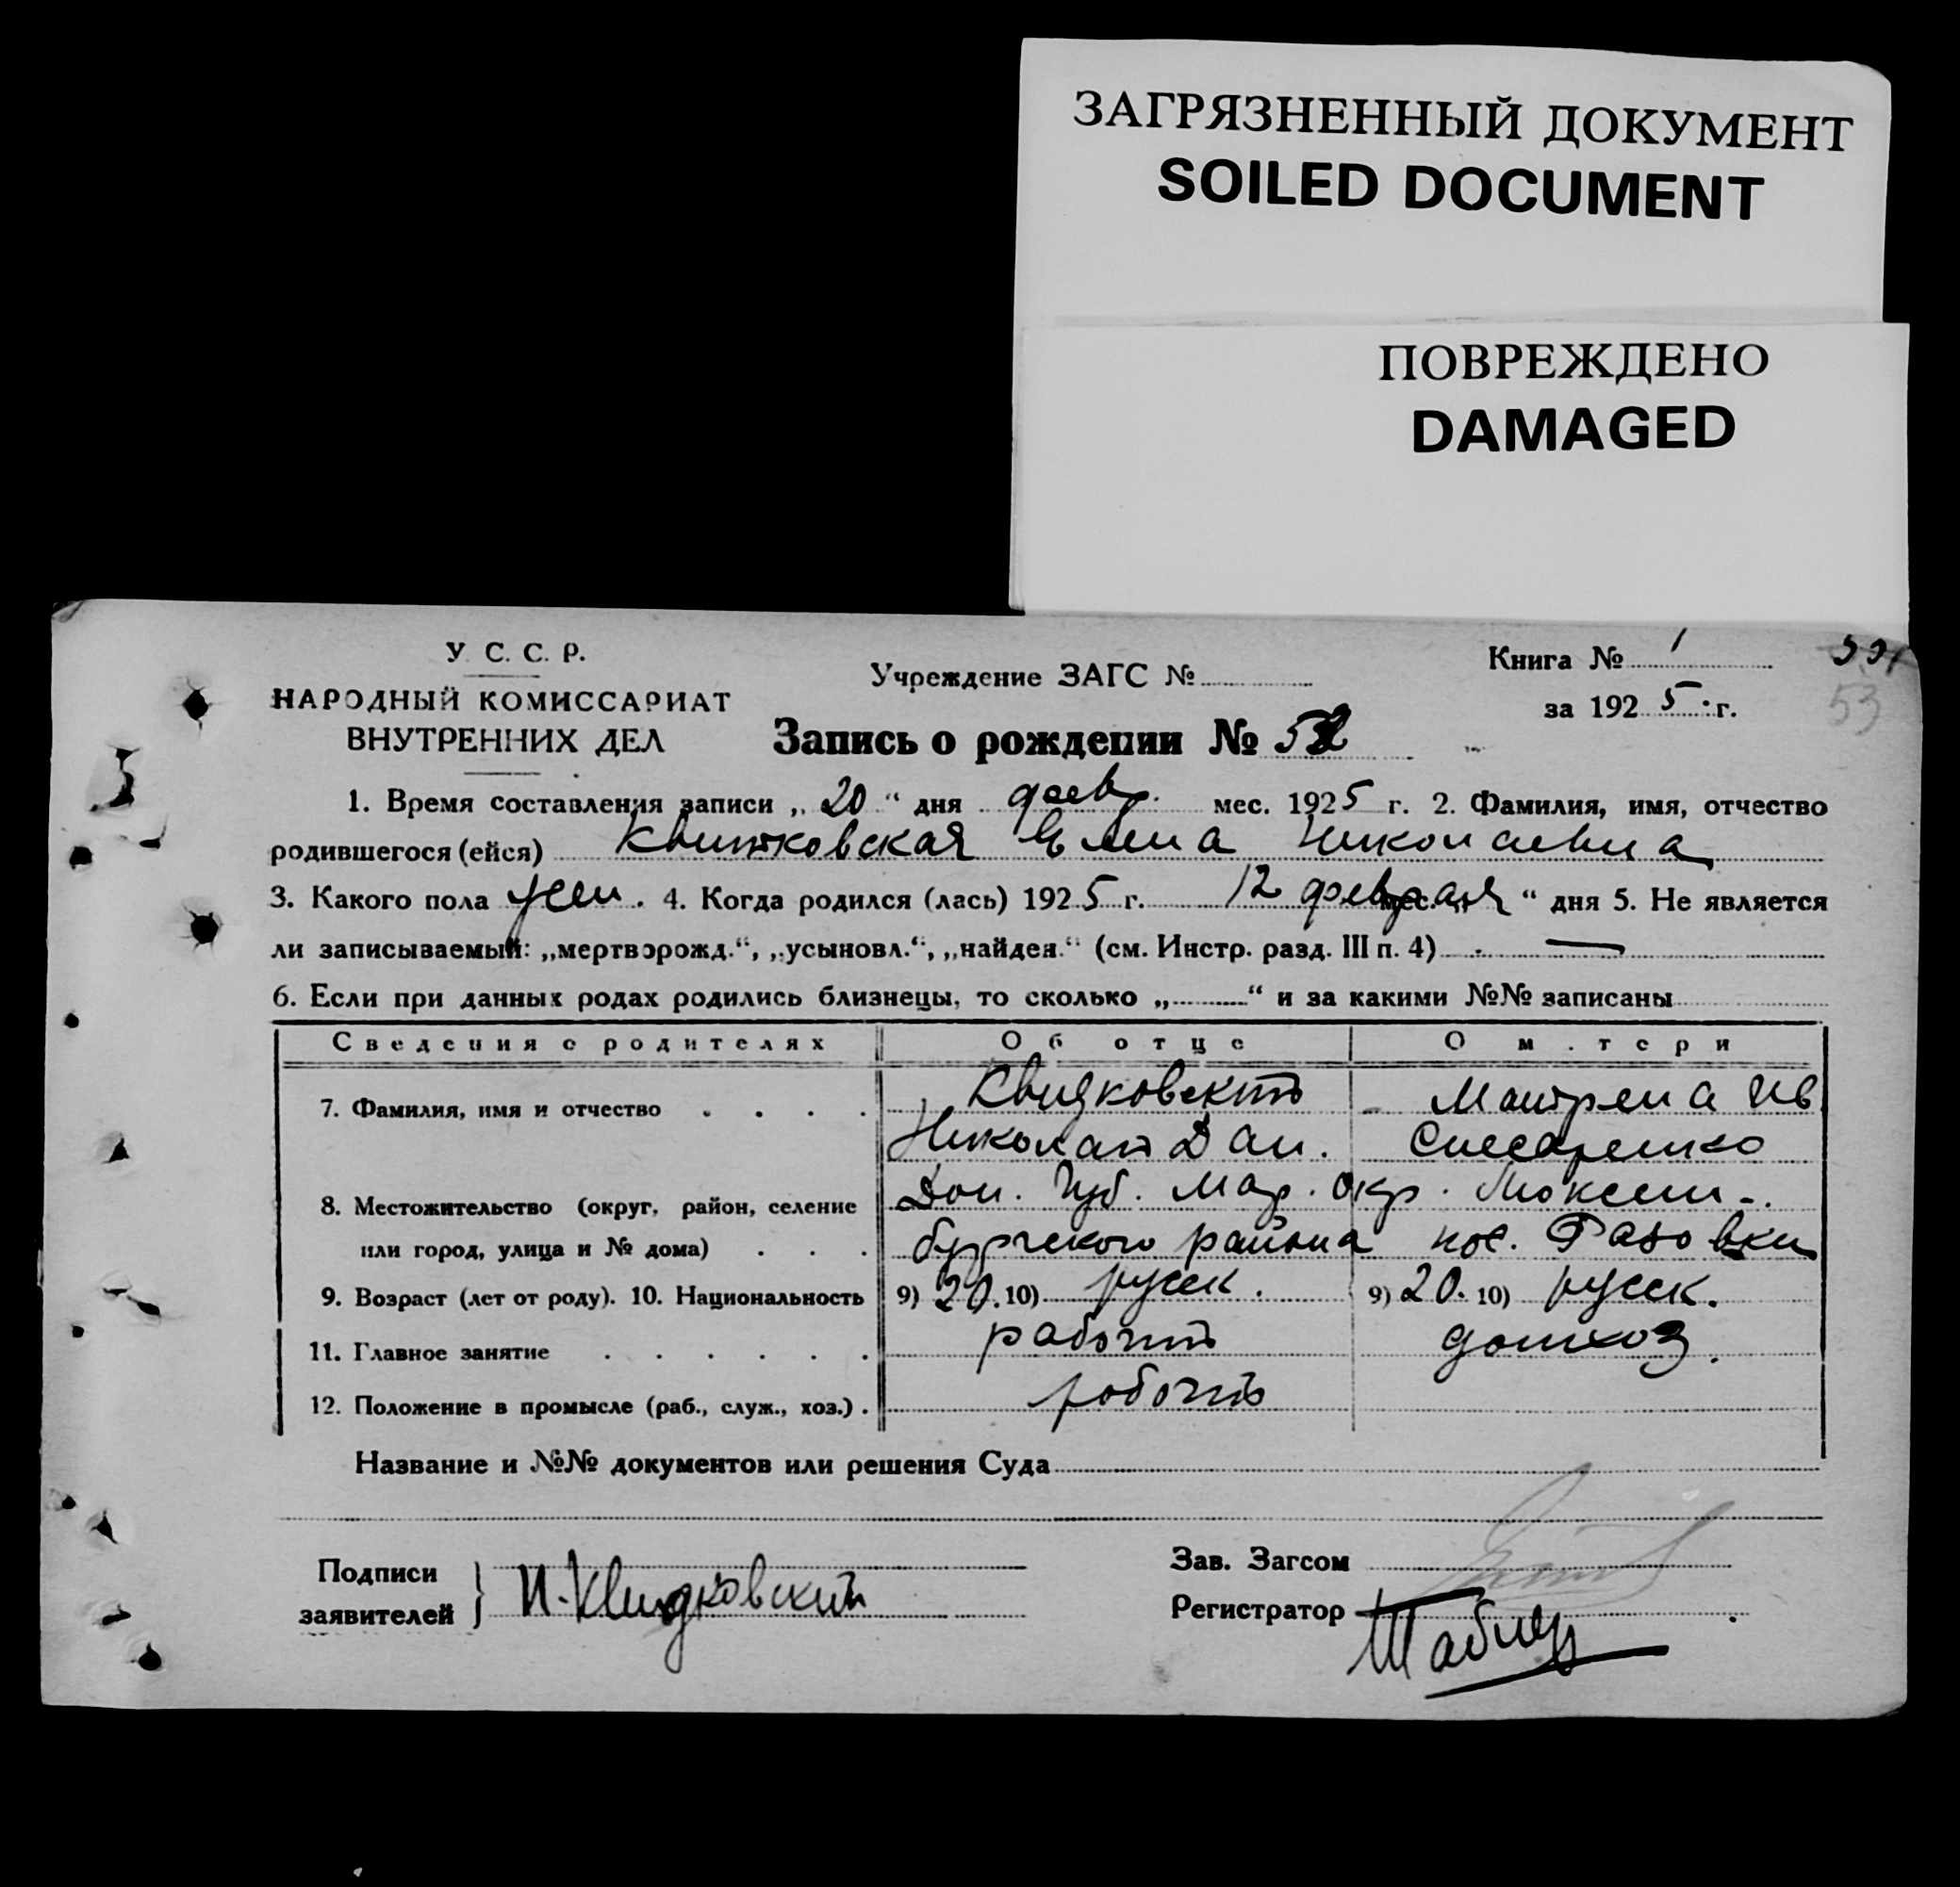 ЗАГРЯЗНЕННЫЙ ДОКУМЕНТ
SOILED DOCUMENT
ПОВРЕЖДЕНО
DAMAGED
У. С. С. Р.
НАРОДНЫЙ КОМИССАРИАТ
ВНУТРЕННИХ ДЕЛ
Учреждение ЗАГС №
Книга № 1
за 1925 г.
53
Запись о рождении № 52
1. Время составления записи „20“ дня февр. мес. 1925 г. 2. Фамилия, имя, отчество
родившегося (ейся) Квитковская Елена Николаевна
3. Какого пола жен. 4. Когда родился (лась) 1925 г. 12 февраля “ дня 5. Не является
ли записываемый: „мертворожд.“, „усыновл.“, „найден.“ (см. Инстр. разд. III п. 4) —
6. Если при данных родах родились близнецы, то сколько „ “ и за какими №№ записаны
Сведения о родителях Об отце О матери
7. Фамилия, имя и отчество Квидковский Матрена Ив
Николай Дан. Слесаренко
8. Местожительство (округ, район, селение Дон. Губ. Мар. Окр. Люксем-
или город, улица и № дома) бургского района пос. Розовки
9. Возраст (лет от роду). 10. Национальность 9) 20. 10) русск. 9) 20. 10) русск.
11. Главное занятие рабочий домхоз.
12. Положение в промысле (раб., служ., хоз.) рабочий
Название и №№ документов или решения Суда
Подписи
заявителей } Н. Квидковский
Зав. Загсом
Регистратор